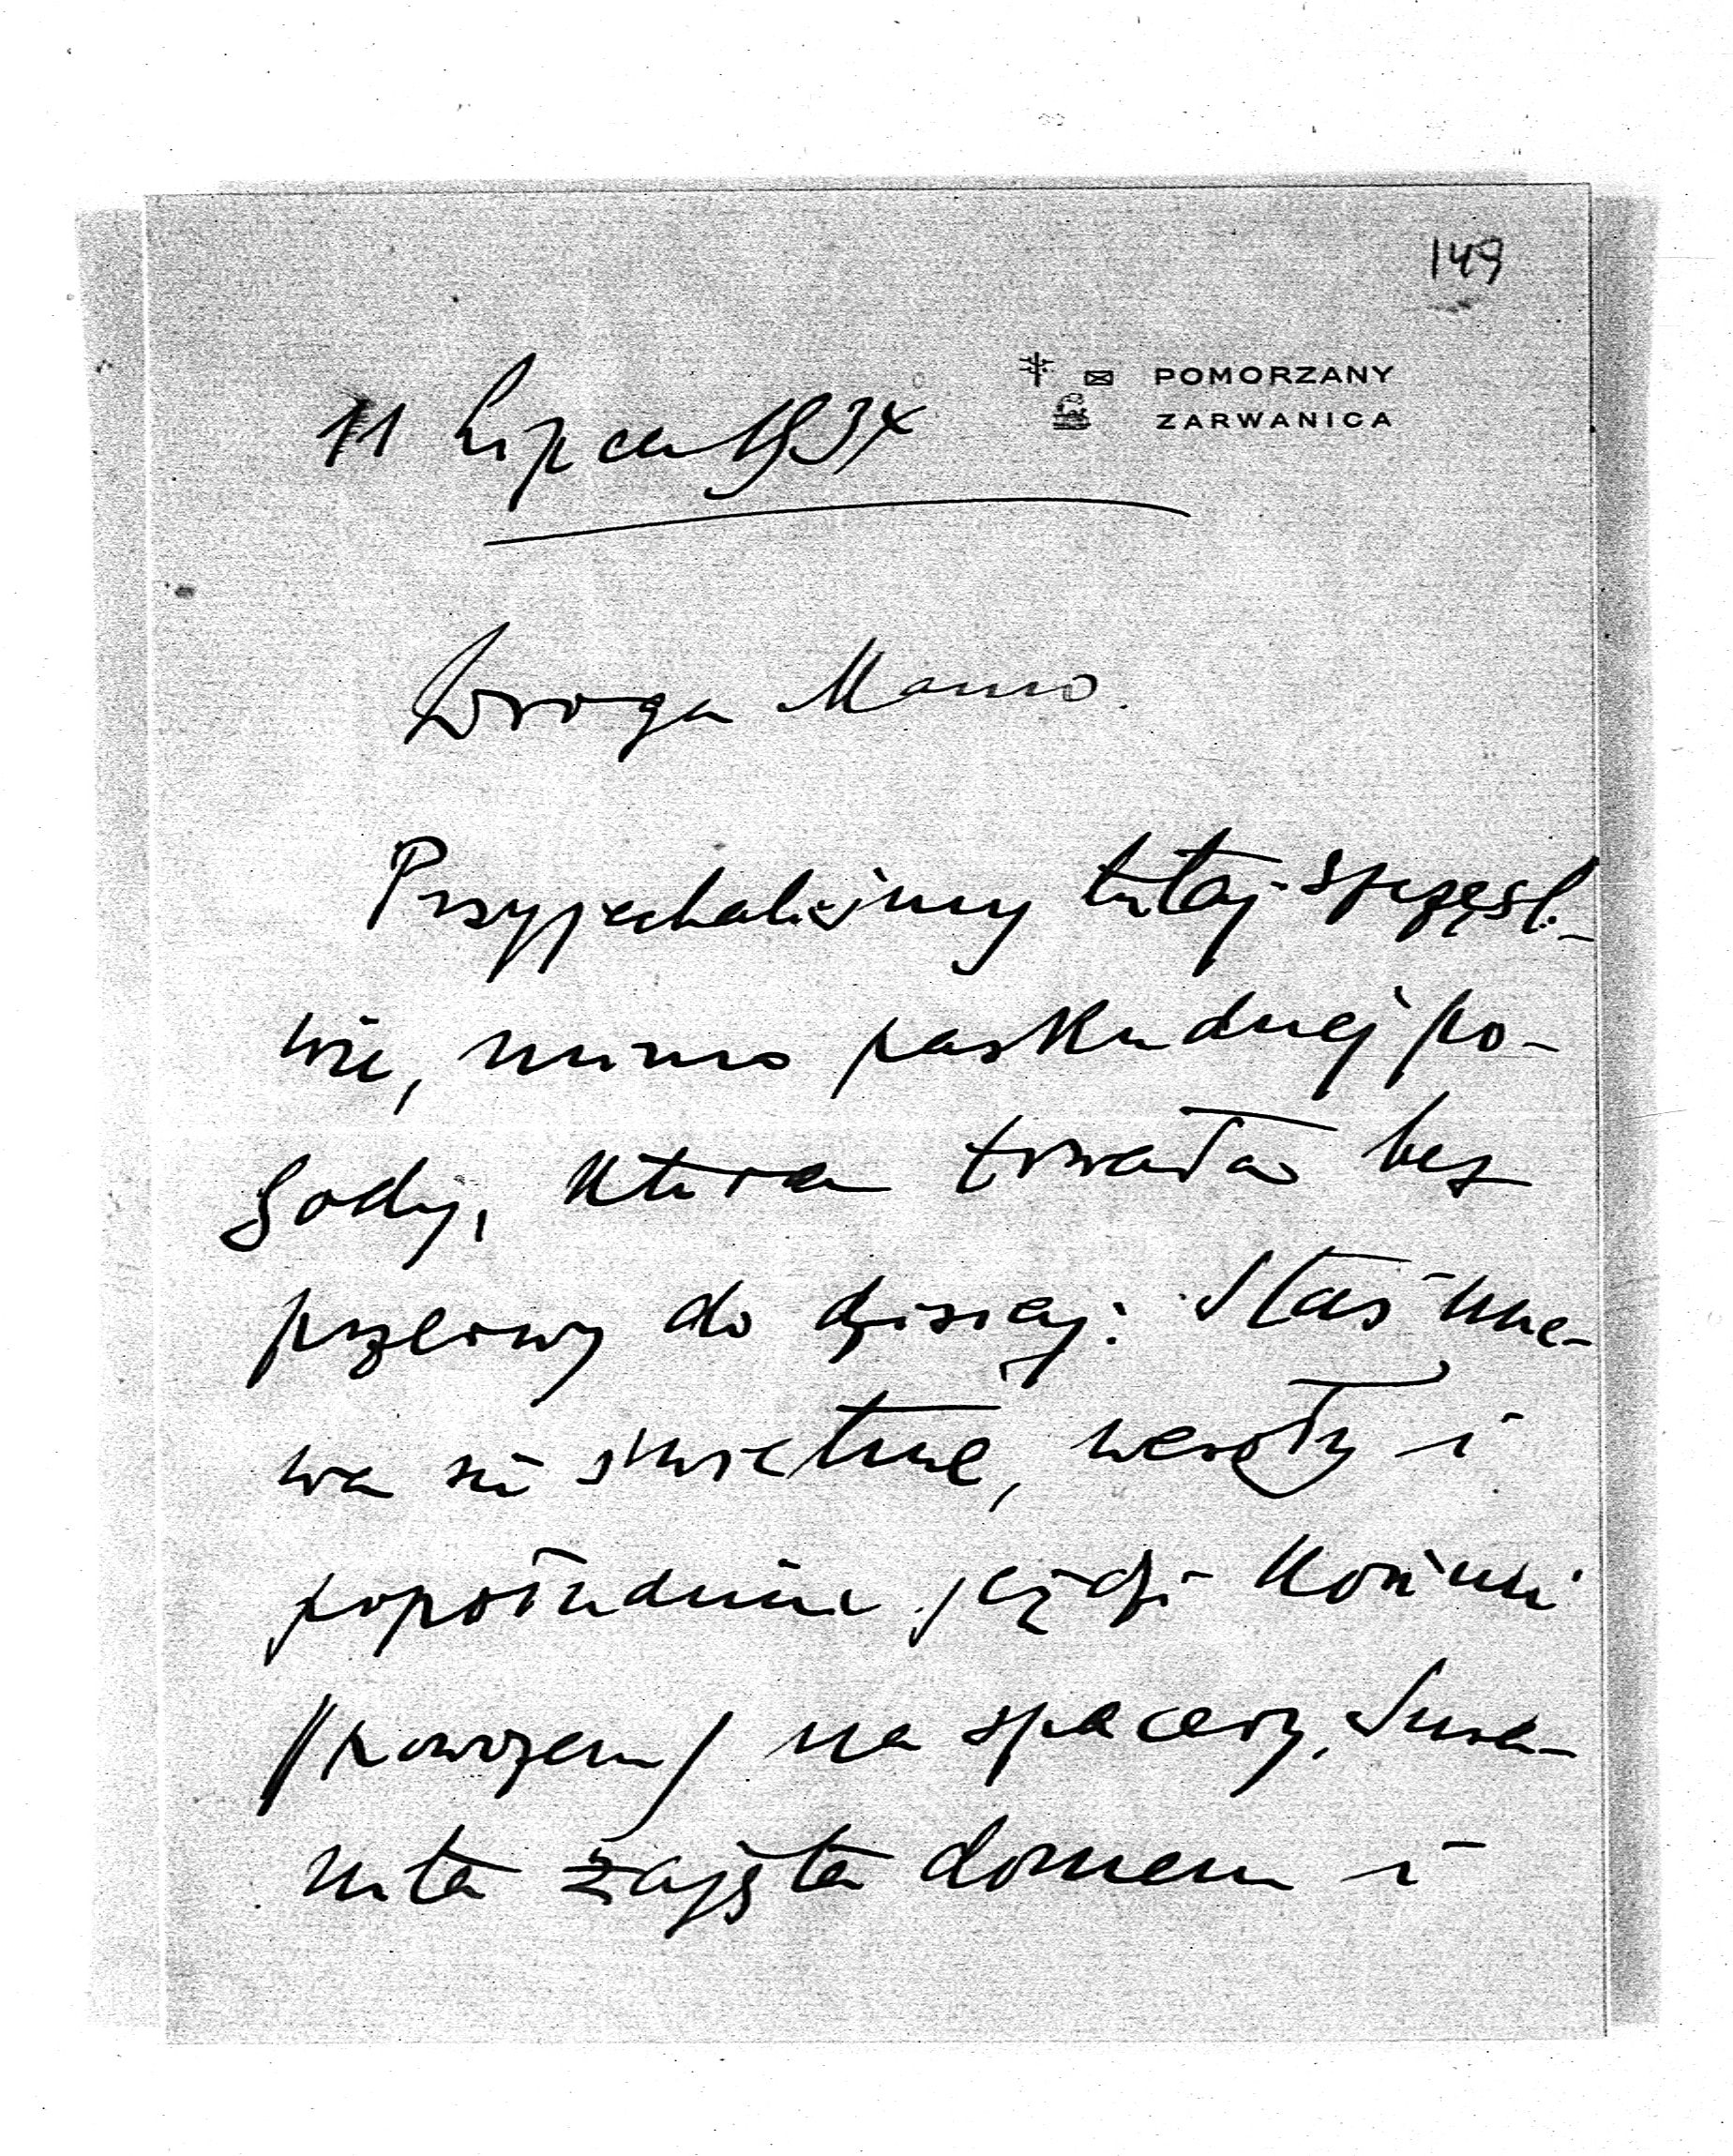 149
POMORZANY
ZARWANICA
11 Lipca 1934
Droga Mamo.
Przyjechaliśmy tutaj szczęśli-
wie, mimo paskudnej po-
gody, która trwała bez
przerwy do dzisiaj. Staś mie-
wa się świetnie, wesoły i
popołudniu jeździ końmi
(powozem) na spacery.
zajęta domem i